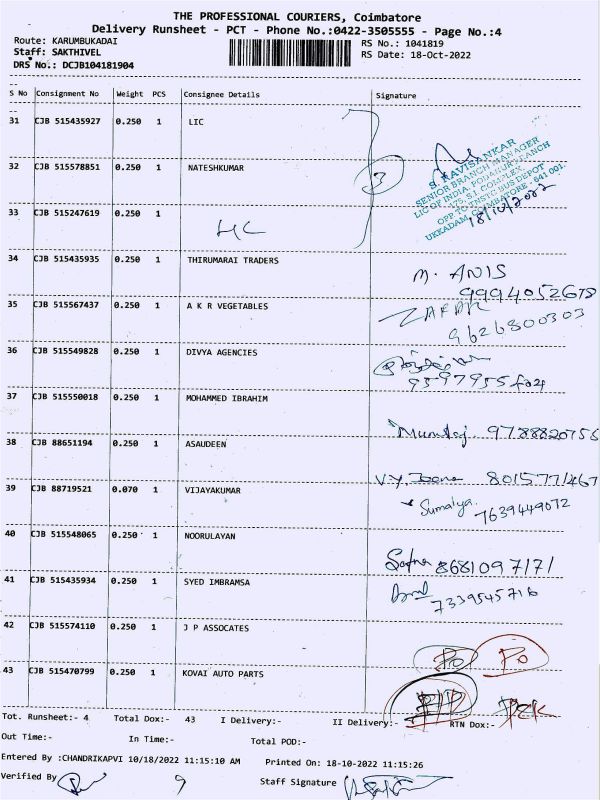 THE PROFESSIONAL COURIERS, Coimbatore
Delivery Runsheet - PCT - Phone No.:0422-3505555 - Page No.:4
Route: KARUMBUKADAI RS No.: 1041819
Staff: SAKTHIVEL RS Date: 18-Oct-2022
DRS No.: DCJB104181904
S No Consignment No Weight PCS Consignee Details Signature
31 CJB 515435927 0.250 1 LIC
32 CJB 515578851 0.250 1 NATESHKUMAR
3
S. RAVISANKAR
SENIOR BRANCH MANAGER
LIC OF INDIA, BRANCH
175, S.I. COMPLEX
OPP TO TNSTC BUS DEPOT
UKKADAM, COIMBATORE - 641 001.
18/10/2022
33 CJB 515247619 0.250 1
LIC
34 CJB 515435935 0.250 1 THIRUMARAI TRADERS
M. ANIS
9994052678
35 CJB 515567437 0.250 1 A K R VEGETABLES
ZAFAR
9626800303
36 CJB 515549828 0.250 1 DIVYA AGENCIES
37 CJB 515550018 0.250 1 MOHAMMED IBRAHIM
Mumtaj. 9788820756
38 CJB 88651194 0.250 1 ASAUDEEN
8015771467
39 CJB 88719521 0.070 1 VIJAYAKUMAR
Sumaiya.
7639449072
40 CJB 515548065 0.250 1 NOORULAYAN
8681097171
41 CJB 515435934 0.250 1 SYED IMBRAMSA
7339545716
42 CJB 515574110 0.250 1 J P ASSOCATES
Po Po
43 CJB 515470799 0.250 1 KOVAI AUTO PARTS
Tot. Runsheet:- 4 Total Dox:- 43 I Delivery:- II Delivery:- RTN Dox:-
Out Time:- In Time:- Total POD:-
Entered By :CHANDRIKAPVI 10/18/2022 11:15:10 AM Printed On: 18-10-2022 11:15:26
Verified By 9 Staff Signature